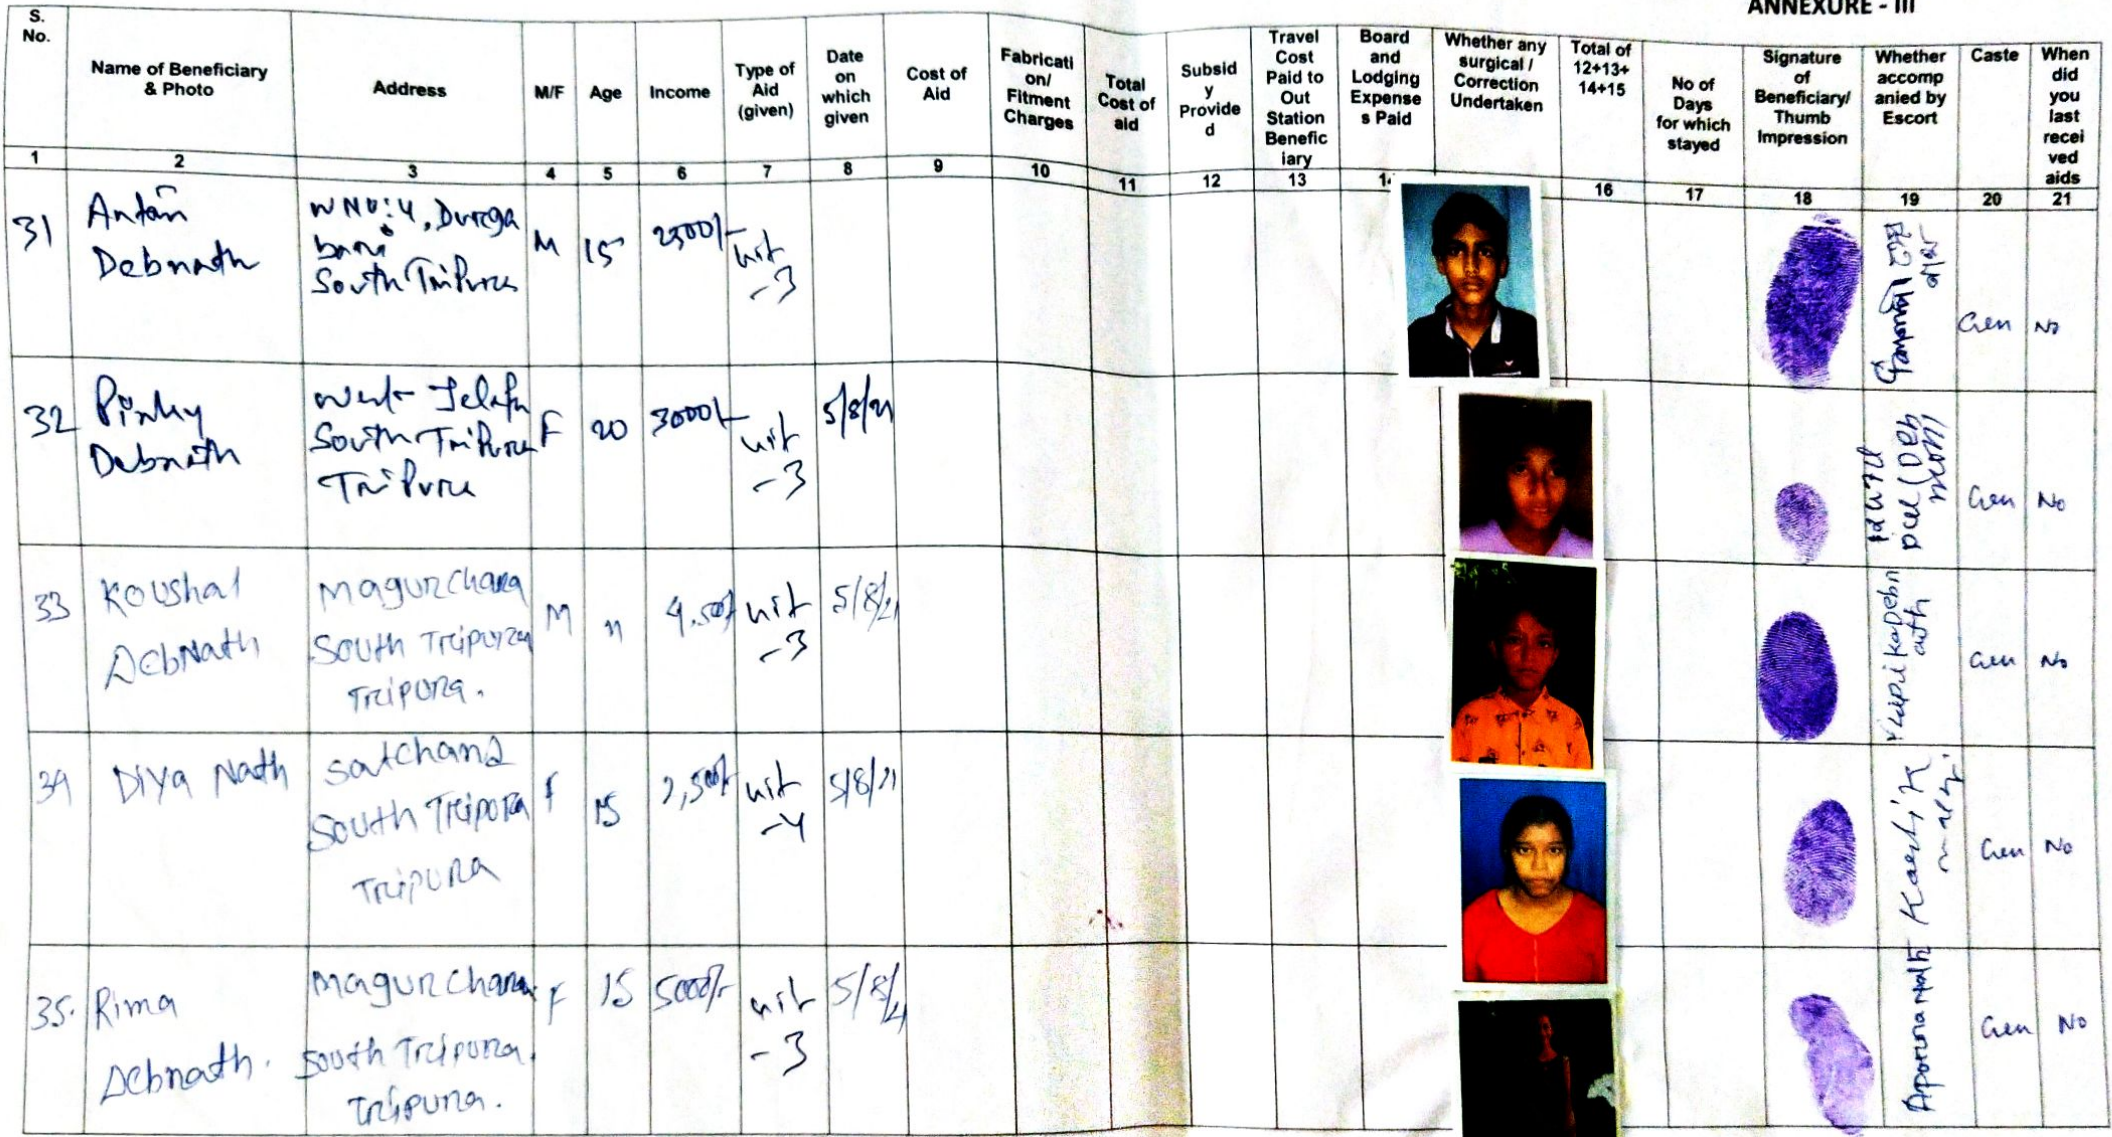 ANNEXURE - III
S. No.
Name of Beneficiary & Photo
Address
M/F
Age
Income
Type of Aid (given)
Date on which given
Cost of Aid
Fabricati on/ Fitment Charges
Total Cost of aid
Subsid y Provide d
Travel Cost Paid to Out Station Benefic iary
Board and Lodging Expense s Paid
Whether any surgical / Correction Undertaken
Total of 12+13+ 14+15
No of Days for which stayed
Signature of Beneficiary/ Thumb Impression
Whether accomp anied by Escort
Caste
When did you last recei ved aids
1 2 3 4 5 6 7 8 9 10 11 12 13 16 17 18 19 20 21
31
Antan
Debnath
W NO: 4, Durga
bari
South Tripura
M
15
2500/-
kit
-3
Gen
No
32
Pinky
Debnath
West
South Tripura
Tripura
F
20
3000/-
kit
-3
5/8/21
Gen
No
33
Koushal
DebNath
Magurchara
South Tripura
Tripura.
M
11
4,500/-
kit
-3
5/8/21
Debn
ath
Gen
No
34
Diya Nath
Satchand
South Tripura
Tripura
F
15
2,500/-
kit
-4
5/8/21
Gen
No
35.
Rima
Debnath.
Magurchara
South Tripura.
Tripura.
F
15
5000/-
kit
-3
5/8/21
Gen
No